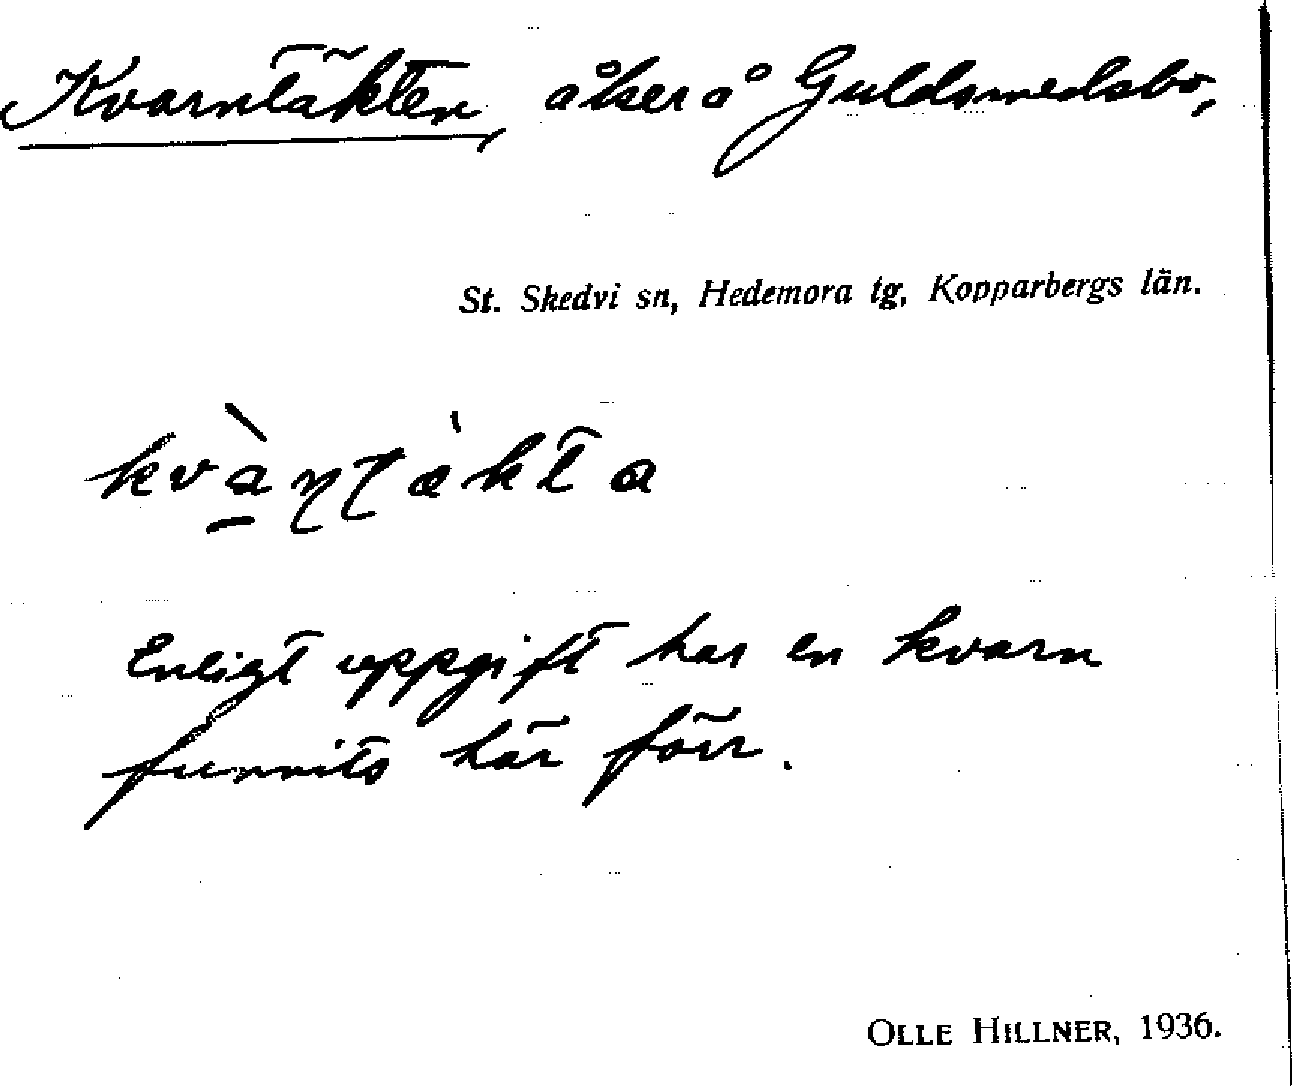 Kvarntäkten, åker å Guldsmedsbo,
St. Skedvi sn, Hedemora tg, Kopparbergs län.
kvà̱ɳʈæ̀kta
Enligt uppgift har en kvarn
funnits här förr.
OLLE HILLNER, 1936.